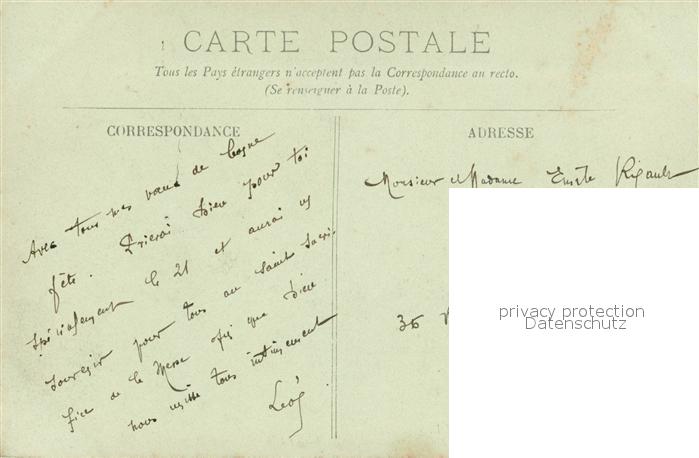 CARTE POSTALE
Tous les Pays étrangers n'acceptent pas la Correspondance au recto.
(Se renseigner à la Poste).
CORRESPONDANCE
Avec tous mes vœux de bonne
fête. Prierai Dieu pour toi
spécialement le 21 et aurai un
souvenir pour tous au Saint Sacri-
fice de la Messe afin que Dieu
nous unisse tous intimement
ADRESSE
Monsieur et Madame Emile Rigault
36
privacy protection
Datenschutz